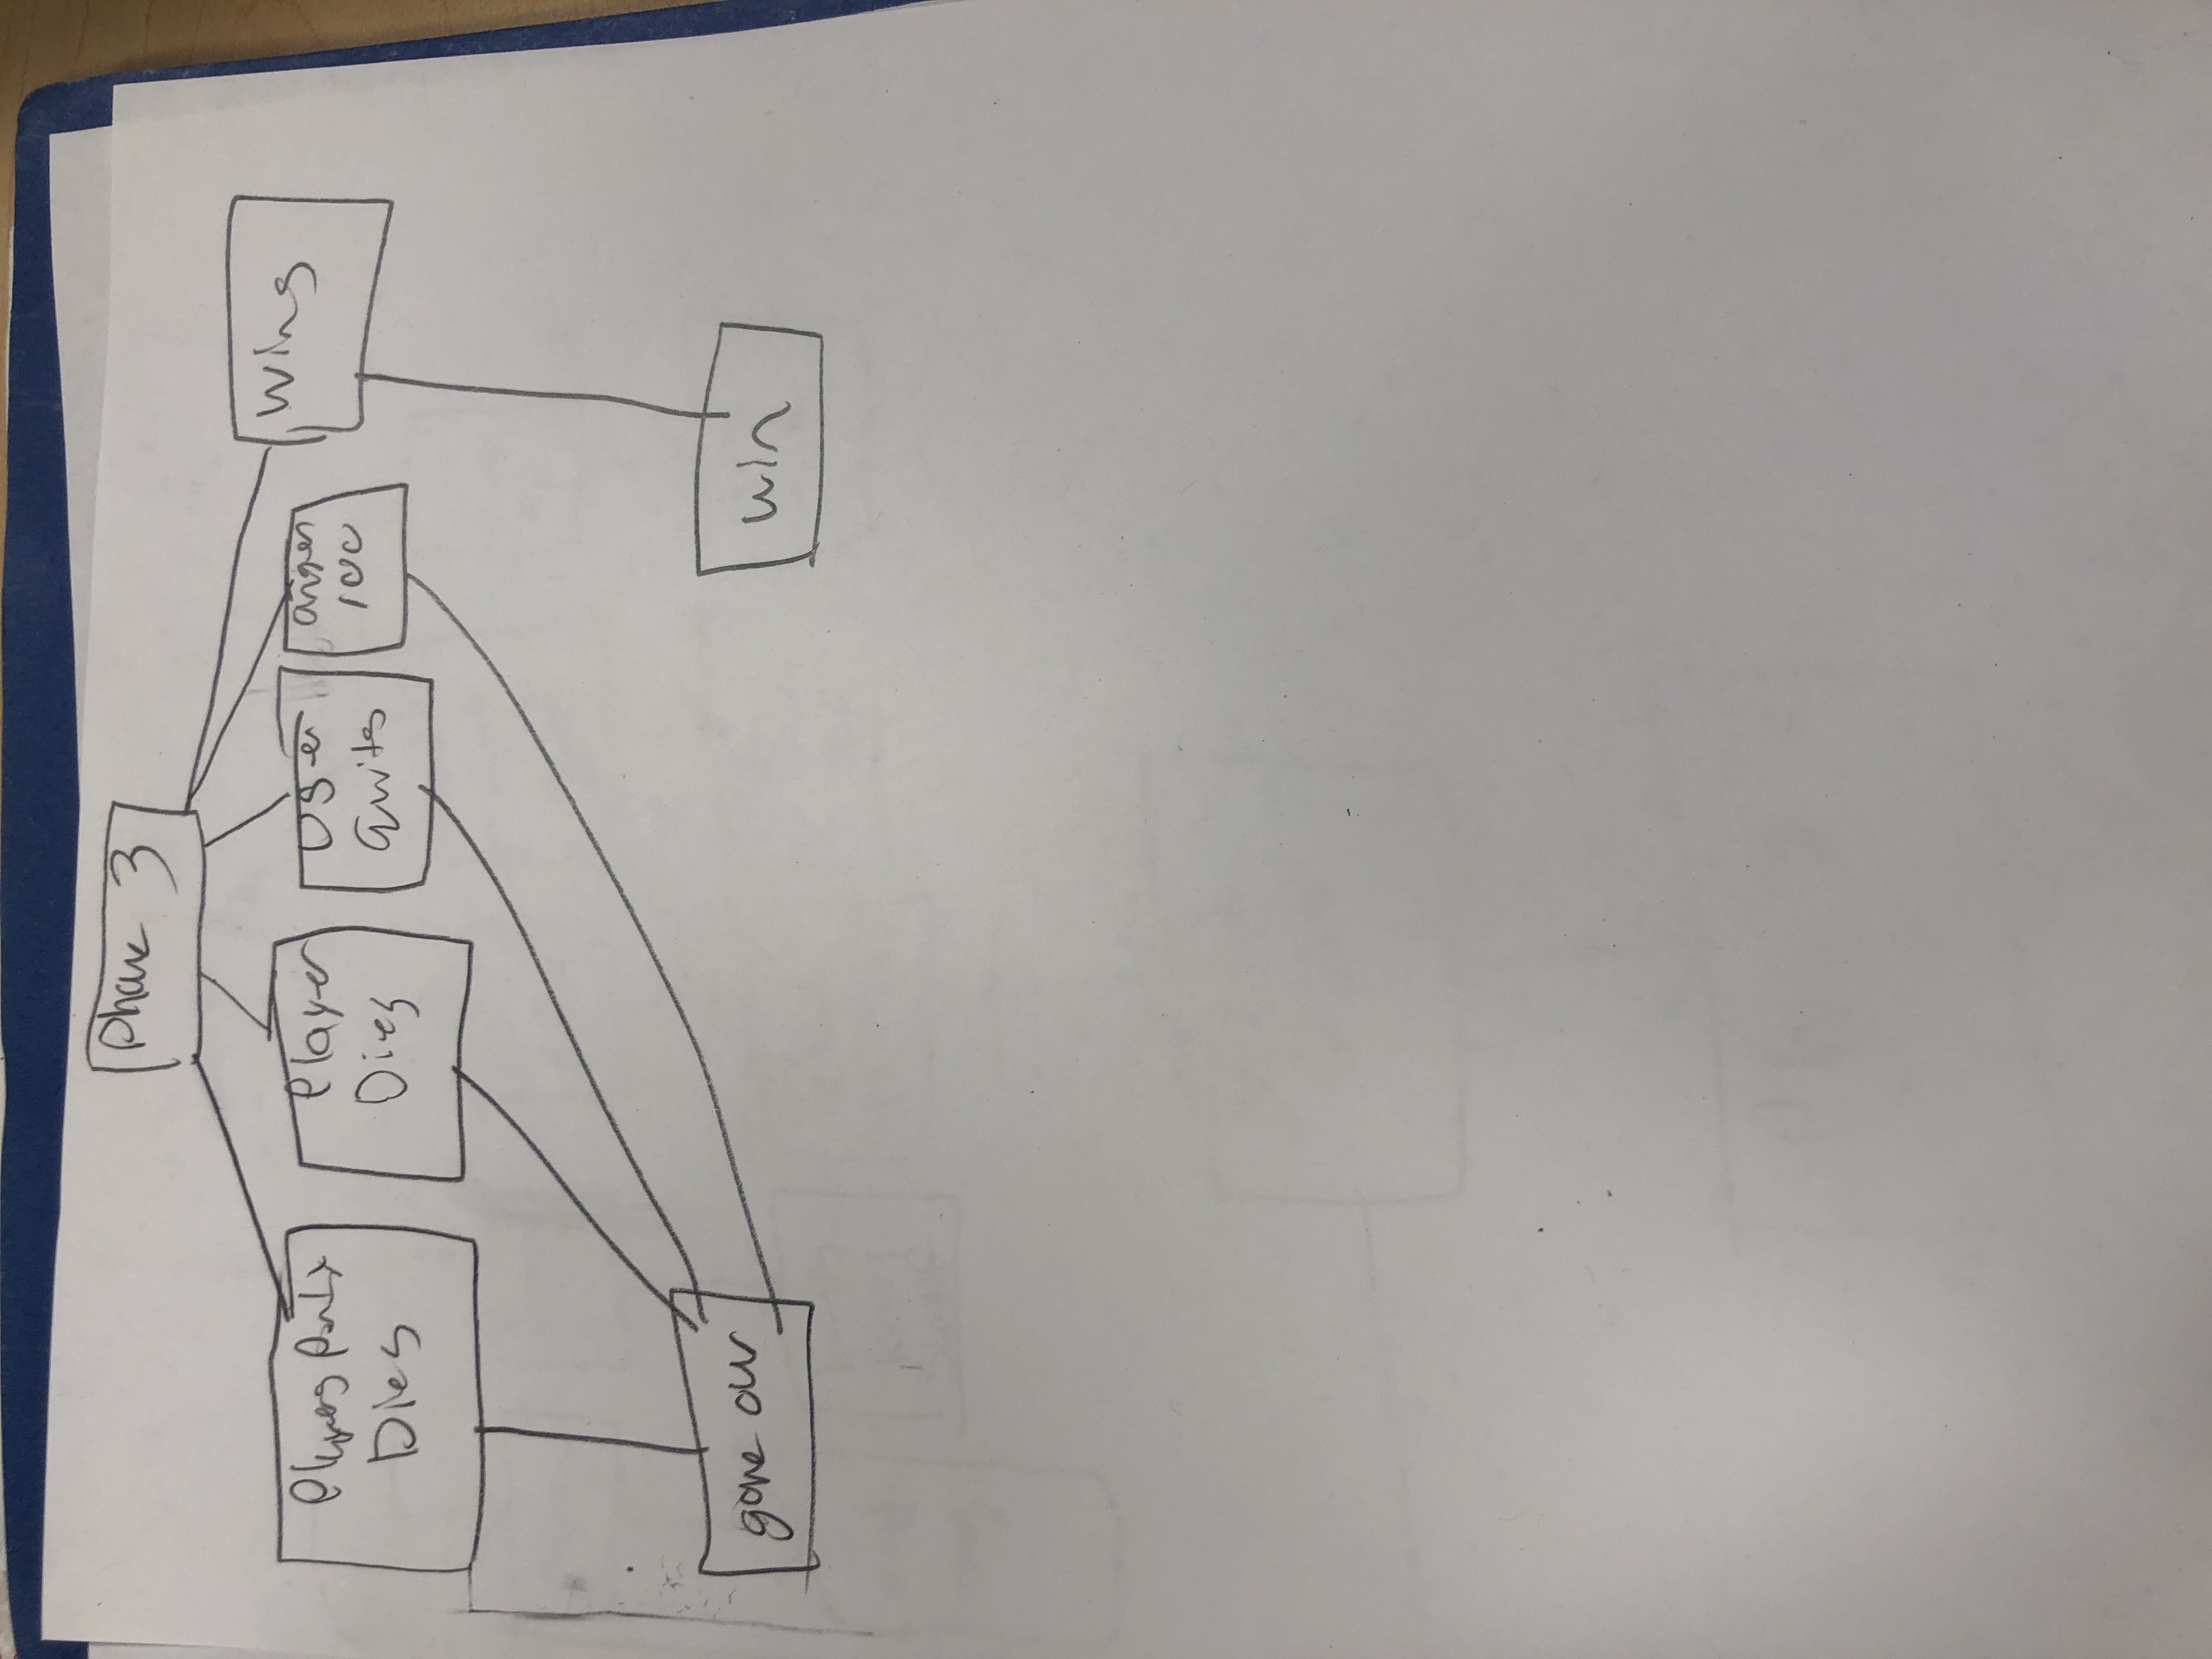 Phase 3
Players Party
Dies
Player
Dies
User
Quits
anger
100
Wins
game over
win